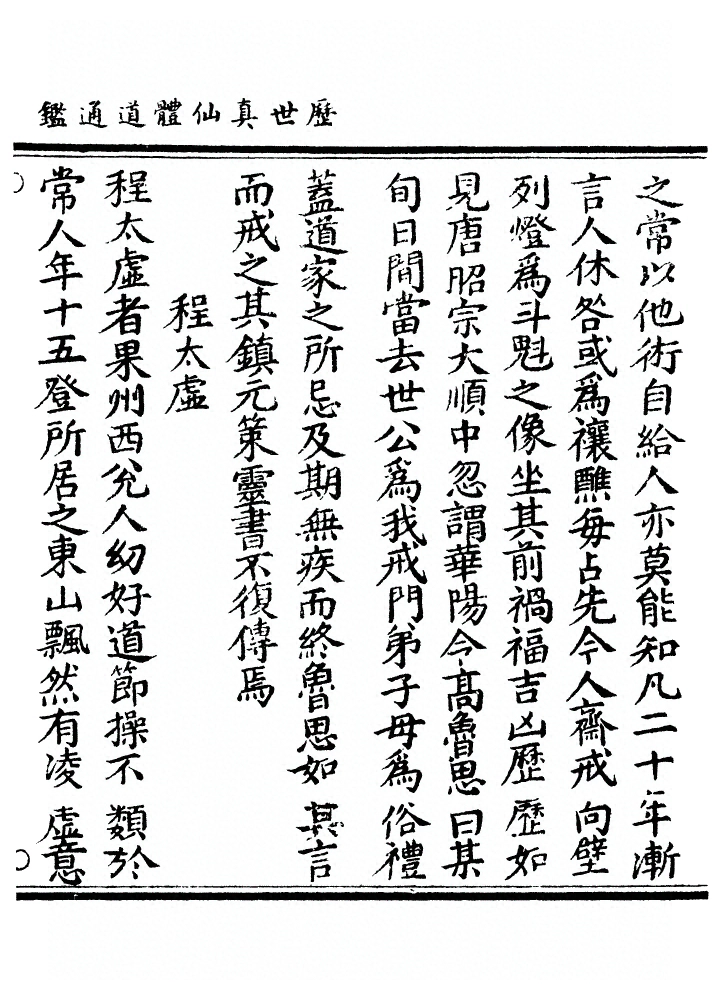 歷世真仙體道通鑑
之常以他術自給人亦莫能知凡二十年漸
言人休咎或爲禳醮每占先令人齋戒向壁
列燈爲斗魁之像坐其前禍福吉凶歷歷如
見唐昭宗大順中忽謂華陽令高魯思曰某
旬日間當去世公爲我戒門弟子毋爲俗禮
蓋道家之所忌及期無疾而終魯思如其言
而戒之其鎮元策靈書不復傳焉
程太虛
程太虛者果州西充人幼好道節操不類於
常人年十五登所居之東山飄然有凌虛意